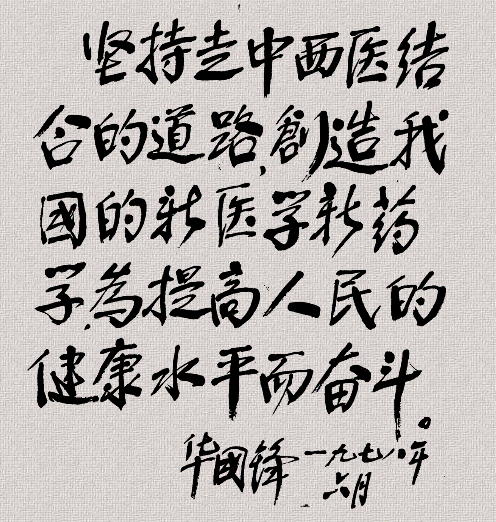 坚持走中西医结
合的道路,創造我
國的新医学新药
学,为提高人民的
健康水平而奋斗。
华國锋一九七八年
六月